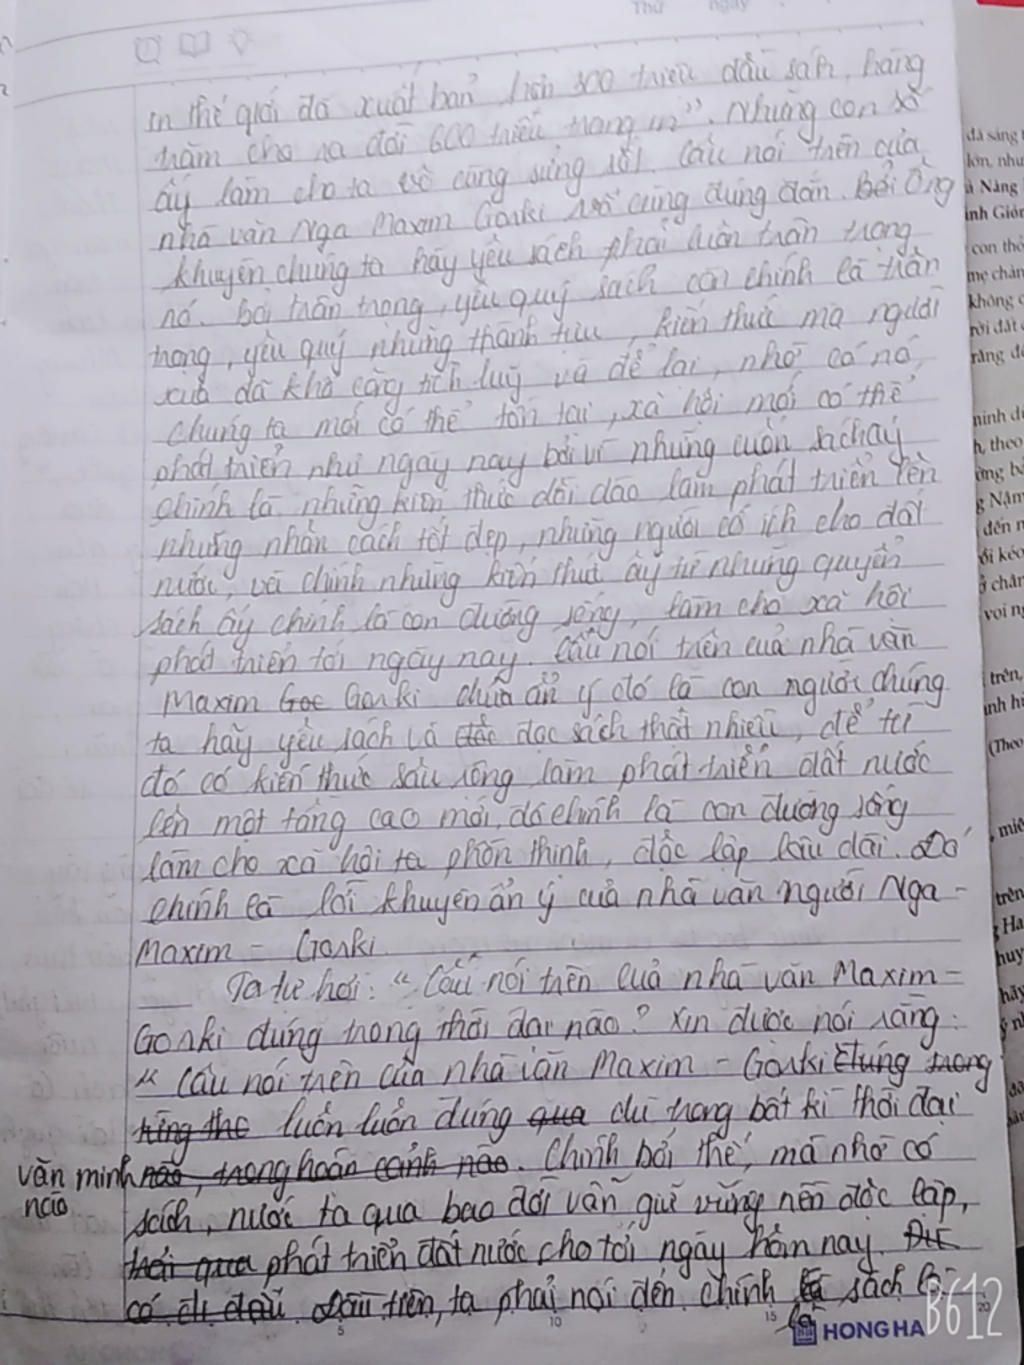 Thứ ngày
in thế giới đã xuất bản hơn 300 triệu đầu sách, hàng
trăm cho ra đời 600 triệu trang in". Những con số
ấy làm cho ta vô cùng sửng sốt. Câu nói trên của
nhà văn Nga Maxim Gorki vô cùng đúng đắn. Bởi Ông
khuyên chúng ta hãy yêu sách phải luôn trân trọng
nó. bởi trân trọng, yêu quý sách còn chính là trân
trọng, yêu quý những thành tựu, kiến thức mà người
xưa đã khổ công tích luỹ và để lại, nhờ có nó,
chúng ta mới có thể tồn tại, xã hội mới có thể
phát triển như ngày nay bởi vì những cuốn sách ấy
chính là những kiến thức dồi dào làm phát triển lên
những nhân cách tốt đẹp, những người có ích cho đất
nước, và chính những kiến thức ấy từ những quyển
sách ấy chính là con đường sống, làm cho xã hội
phát triển tới ngày nay. Câu nói trên của nhà văn
Maxim Goc Gorki chứa ẩn ý đó là con người chúng
ta hãy yêu sách và đọc sách thật nhiều, để từ
đó có kiến thức sâu rộng làm phát triển đất nước
lên một tầng cao mới, đó chính là con đường sống
làm cho xã hội ta phồn thịnh, độc lập lâu dài. Đó
chính là lời khuyên ẩn ý của nhà văn người Nga -
Maxim - Gorki.
Ta tự hỏi: "Câu nói trên của nhà văn Maxim -
Gorki đúng trong thời đại nào? Xin được nói rằng:
"Câu nói trên của nhà văn Maxim - Gorki đúng trong
từng thơ luôn luôn đúng qua dù trong bất kì thời đại
văn minh nào, trong hoàn cảnh nào. Chính bởi thế, mà nhờ có
nào
sách, nước ta qua bao đời vẫn giữ vững nền độc lập,
trải qua phát triển đất nước cho tới ngày hôm nay.
có đi đầu đầu tiên, ta phải nói đến chính là sách là
là
5 10 15 20
HONG HA
B612
đã sáng
lớn, như
à Nàng
con thơ
mẹ
không
rời đất
răng
ninh
h, theo
Nậm
đến
ối kéo
ở chân
voi
trên,
(Theo
miê
trên
Ha
huy
hãy